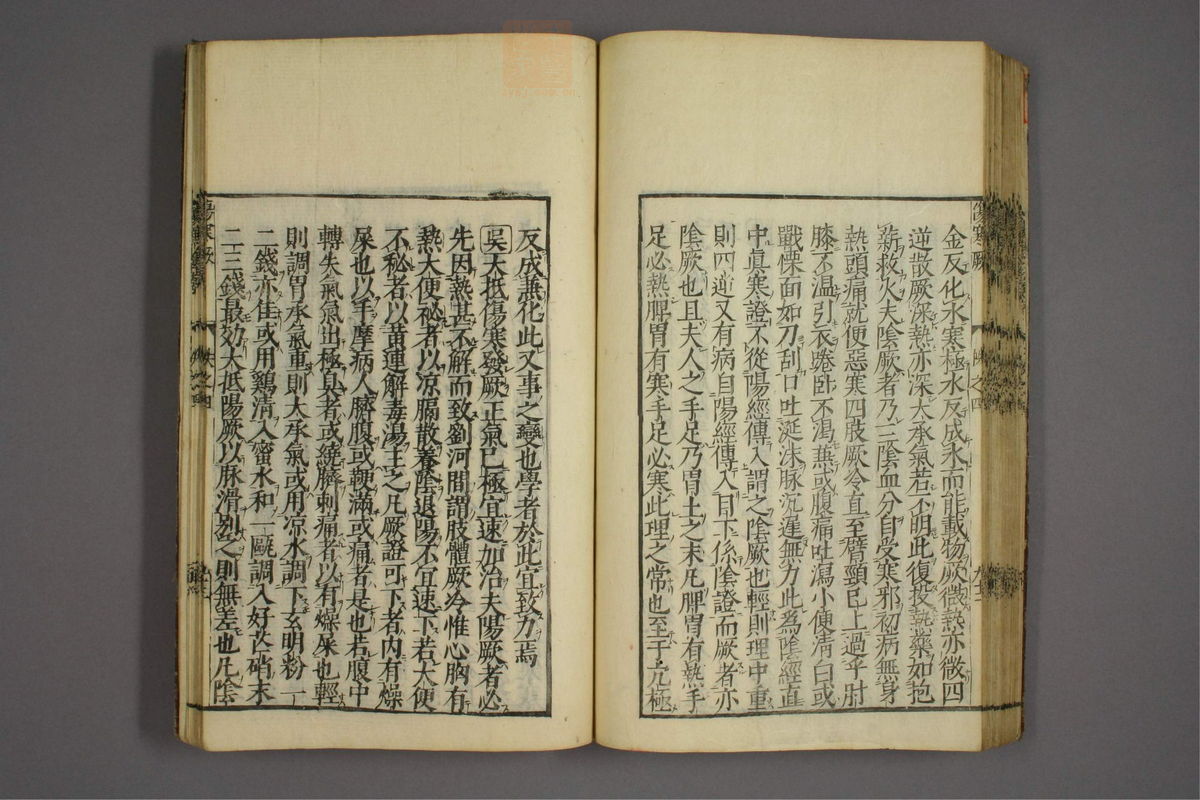 金反化水寒極水反成氷而能載物厥微熱亦微四
逆散厥深熱亦深大承氣若不明此復投熱藥如抱
薪救火夫陰厥者乃三陰血分自受寒邪初病無身
熱頭痛就便惡寒四肢厥冷直至臂頸已上過乎肘
膝不温引衣踡卧不渴兼或腹痛吐瀉小便淸白或
戰慄面如刀刮口吐涎沫脉沉遲無力此爲陰經直
中眞寒證不從陽經傳入謂之陰厥也輕則理中重
則四逆又有病自陽經傳入目下係陰證而厥者亦
陰厥也且夫人之手足乃胃土之末凡脾胃有熱手
足必熱脾胃有寒手足必寒此理之常也至于亢極
反成兼化此又事之變也學者於此宜致力焉
吳大抵傷寒發厥正氣已極宜速加治夫陽厥者必
先因熱甚不解而致劉河間謂肢體厥冷惟心胸有
熱大便秘者以凉膈散養陰退陽不宜速下若大便
不秘者以黄連解毒湯主之凡厥證可下者内有燥
屎也以手摩病人臍腹或鞕滿或痛者是也若腹中
轉失氣氣出極臭者或繞臍刺痛者以有燥屎也輕
則調胃承氣重則大承氣或用凉水調下玄明粉一
二錢亦佳或用鷄清入蜜水和一甌調入好芒硝末
二三錢最効大抵陽厥以脉滑别之則無差也凡陰
傷寒厥
卷之四